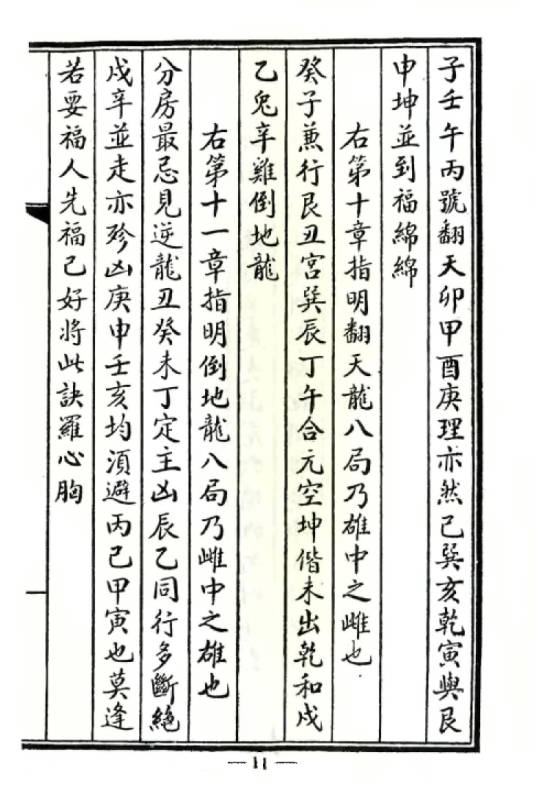 子壬午丙號翻天卯甲酉庚理亦然己巽亥乾寅與艮
申坤並到福綿綿
右第十章指明翻天龍八局乃雄中之雌也
癸子兼行艮丑宮巽辰丁午合元空坤偕未出乾和戍
乙兔辛雞倒地龍
右第十一章指明倒地龍八局乃雌中之雄也
分房最忌見逆龍丑癸未丁定主凶辰乙同行多斷絕
戍辛並走亦殄凶庚申壬亥均須避丙己甲寅也莫逢
若要福人先福己好將此訣羅心胸
— 11 —